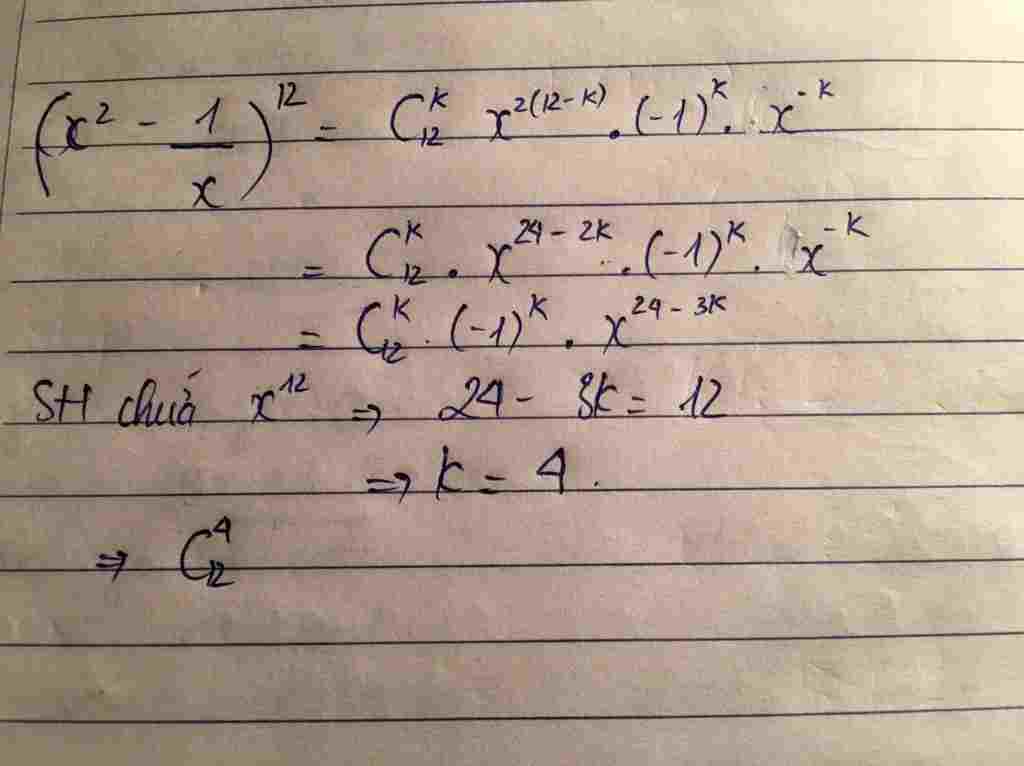 (x² - 1/x)¹² = C₁₂ᵏ x²⁽¹²⁻ᵏ⁾ . (-1)ᵏ . x⁻ᵏ
= C₁₂ᵏ . x²⁴⁻²ᵏ . (-1)ᵏ . x⁻ᵏ
= C₁₂ᵏ . (-1)ᵏ . x²⁴⁻³ᵏ
SH chuá x¹² ⇒ 24 - 3k = 12
⇒ k = 4.
⇒ C₁₂⁴